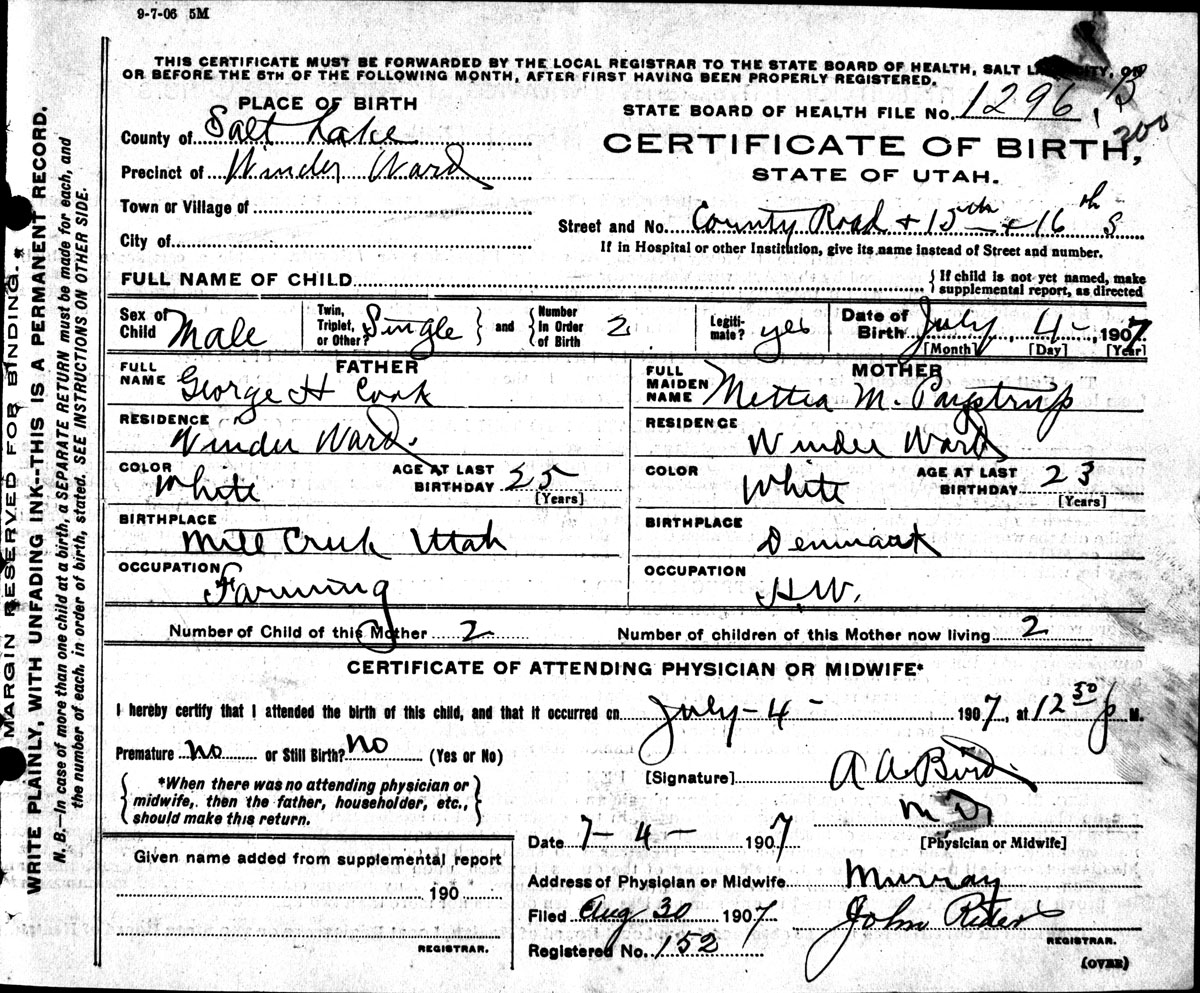 9-7-06 5M
THIS CERTIFICATE MUST BE FORWARDED BY THE LOCAL REGISTRAR TO THE STATE BOARD OF HEALTH, SALT LAKE CITY, ON
OR BEFORE THE 5TH OF THE FOLLOWING MONTH, AFTER FIRST HAVING BEEN PROPERLY REGISTERED.
MARGIN RESERVED FOR BINDING.
WRITE PLAINLY, WITH UNFADING INK--THIS IS A PERMANENT RECORD.
N. B.—In case of more than one child at a birth, a SEPARATE RETURN must be made for each, and
the number of each, in order of birth, stated. SEE INSTRUCTIONS ON OTHER SIDE.
PLACE OF BIRTH
County of Salt Lake
Precinct of Winder Ward
Town or Village of
City of
STATE BOARD OF HEALTH FILE No. 1296, B
300
CERTIFICATE OF BIRTH,
STATE OF UTAH.
Street and No. County Road + 15th + 16th S
If in Hospital or other Institution, give its name instead of Street and number.
FULL NAME OF CHILD
If child is not yet named, make
supplemental report, as directed
Sex of Child Male
Twin, Triplet, or Other? Single and Number In Order of Birth 2
Legiti-mate? yes
Date of Birth July 4-, 1907
[Month] [Day] [Year]
FATHER
FULL NAME George H Cook
RESIDENCE Winder Ward.
COLOR White AGE AT LAST BIRTHDAY 25 [Years]
BIRTHPLACE Mill Creek Utah
OCCUPATION Farming
MOTHER
FULL MAIDEN NAME Mettea M.
RESIDENCE Winder Ward
COLOR White AGE AT LAST BIRTHDAY 23 [Years]
BIRTHPLACE Denmark
OCCUPATION H.W.
Number of Child of this Mother 2 Number of children of this Mother now living 2
CERTIFICATE OF ATTENDING PHYSICIAN OR MIDWIFE*
I hereby certify that I attended the birth of this child, and that it occurred on July - 4 - 1907, at 12 30 p M.
Premature no or Still Birth? no (Yes or No)
*When there was no attending physician or
midwife, then the father, householder, etc.,
should make this return.
[Signature] A A Bird
M D
[Physician or Midwife]
Date 7 - 4 - 1907
Given name added from supplemental report
190
REGISTRAR.
Address of Physician or Midwife Murray
Filed Aug 30 1907 John
REGISTRAR.
Registered No. 152
(OVER)